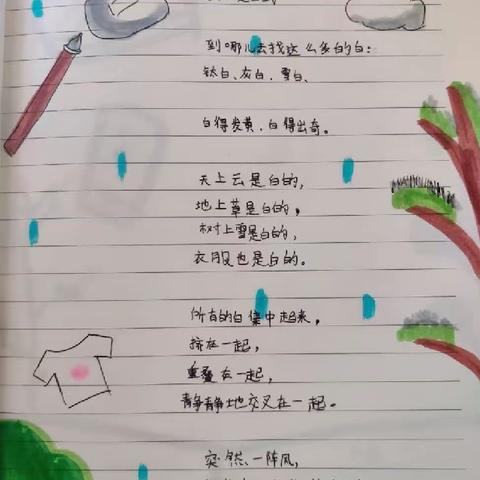 到哪儿去找这么多的白：
钛白、灰白、雪白、
白得发黄、白得出奇。
天上云是白的，
地上草是白的，
树上雪是白的，
衣服也是白的。
所有的白集中起来，
挤在一起，
重叠在一起，
静静静地交叉在一起。
突然一阵风，